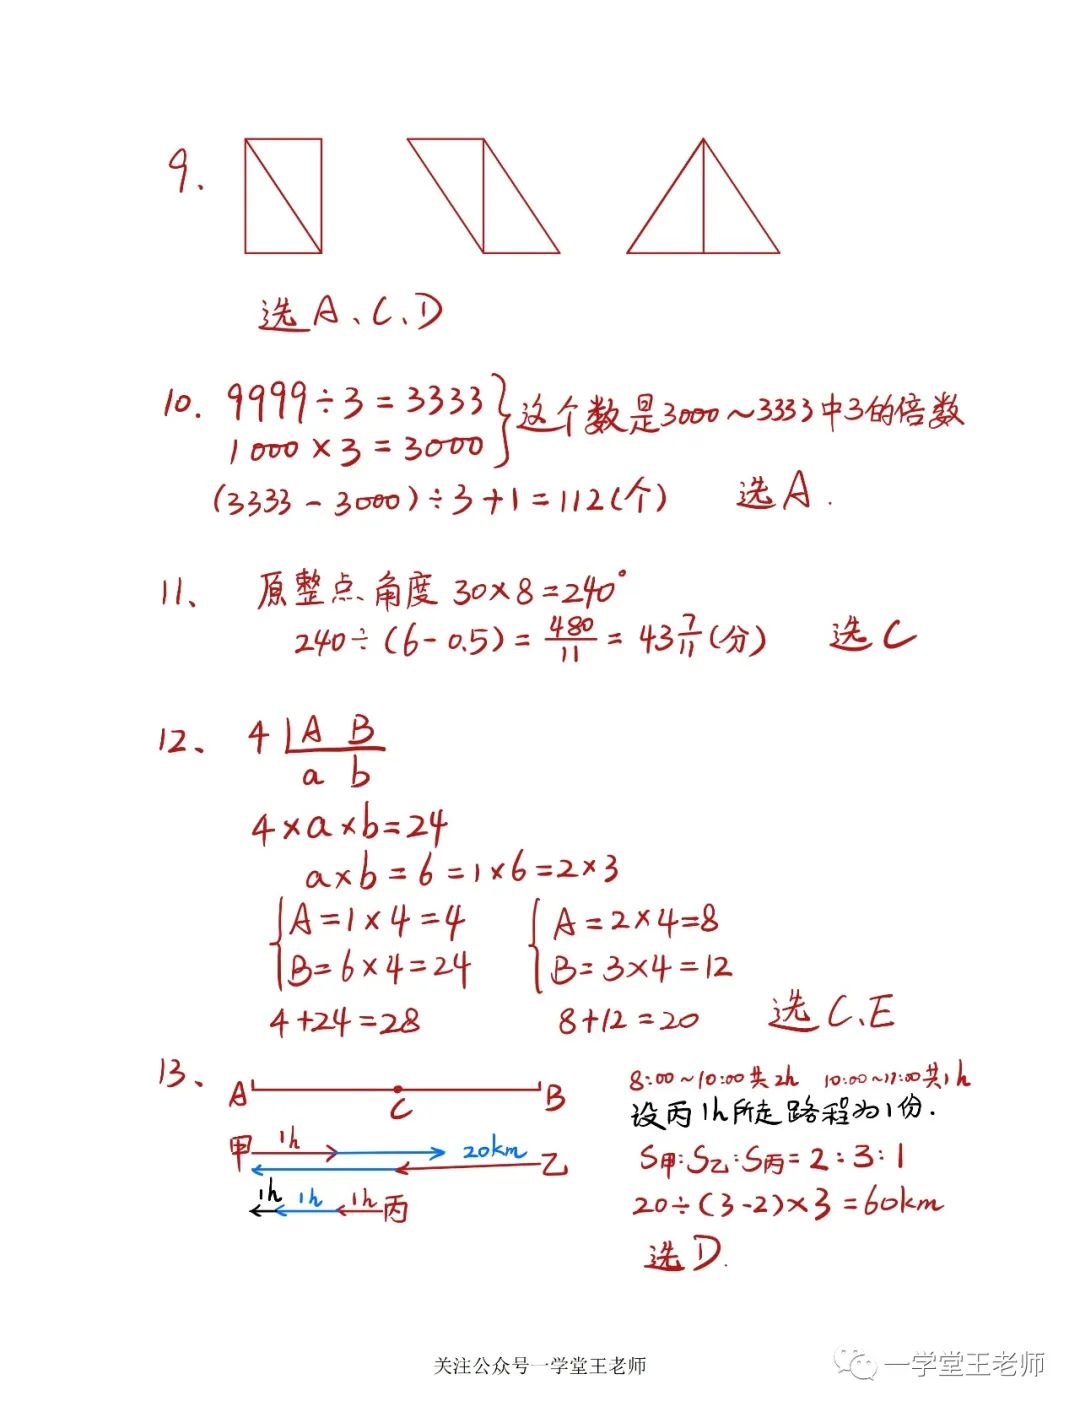 9.
选A、C、D
10. 9999÷3=3333
1000×3=3000
这个数是3000~3333中3的倍数
(3333-3000)÷3+1=112(个) 选A.
11、 原整点角度 30×8=240°
240÷(6-0.5)=480/11=43 7/11(分) 选C
12、 4 A B
a b
4×a×b=24
a×b=6=1×6=2×3
A=1×4=4 A=2×4=8
B=6×4=24 B=3×4=12
4+24=28 8+12=20 选C、E
13、
A C B
甲 1h 20km 乙
1h 1h 1h 丙
8:00~10:00共2h 10:00~11:00共1h
设丙1h所走路程为1份.
S甲:S乙:S丙=2:3:1
20÷(3-2)×3=60km
选D.
关注公众号一学堂王老师
一学堂王老师